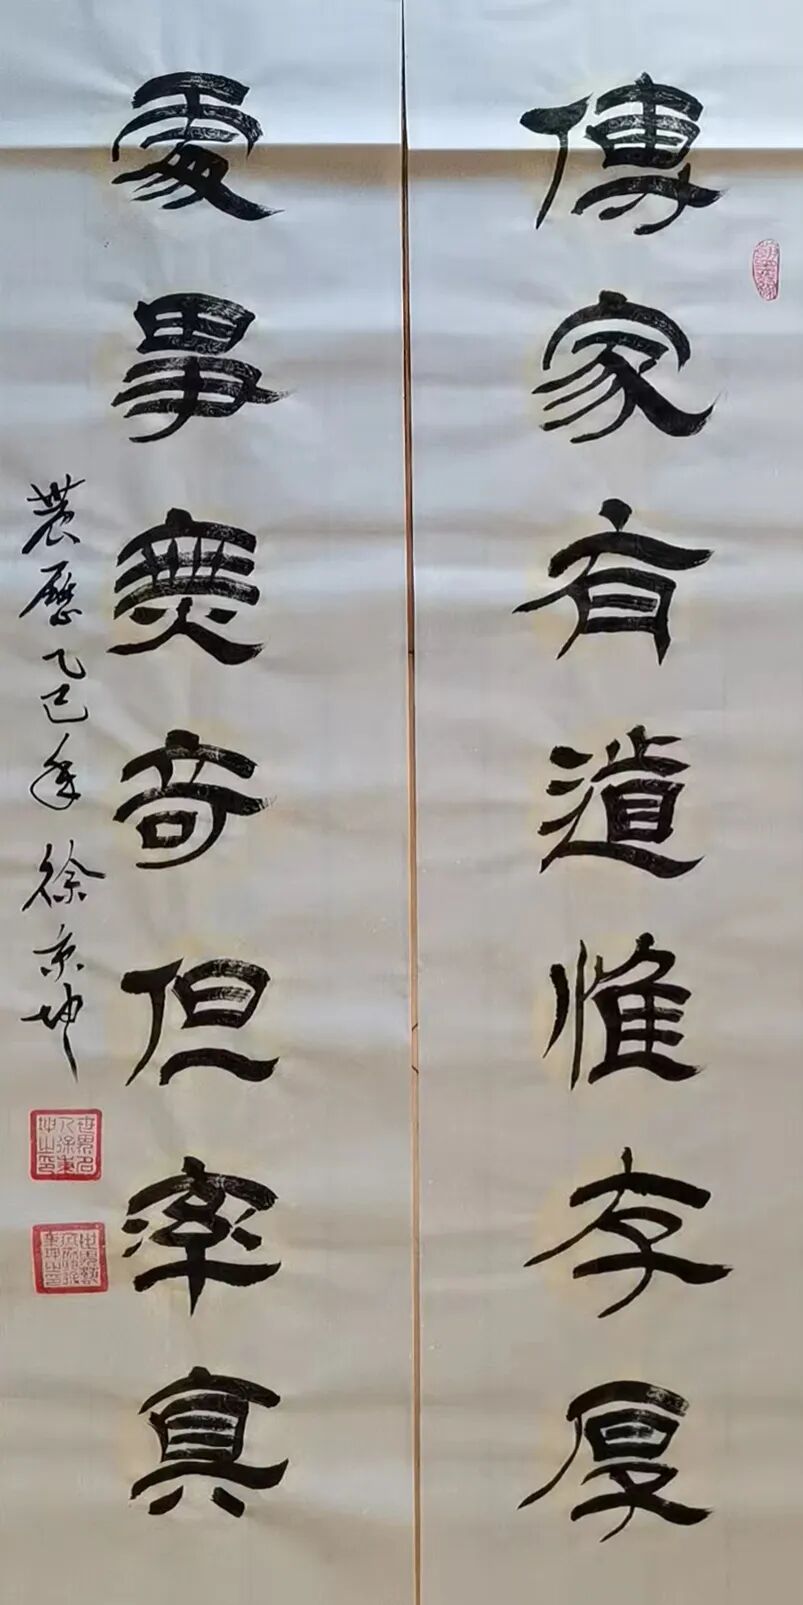 傳家有道惟存厚
處事無奇但率真
農歷乙巳年 徐京坤